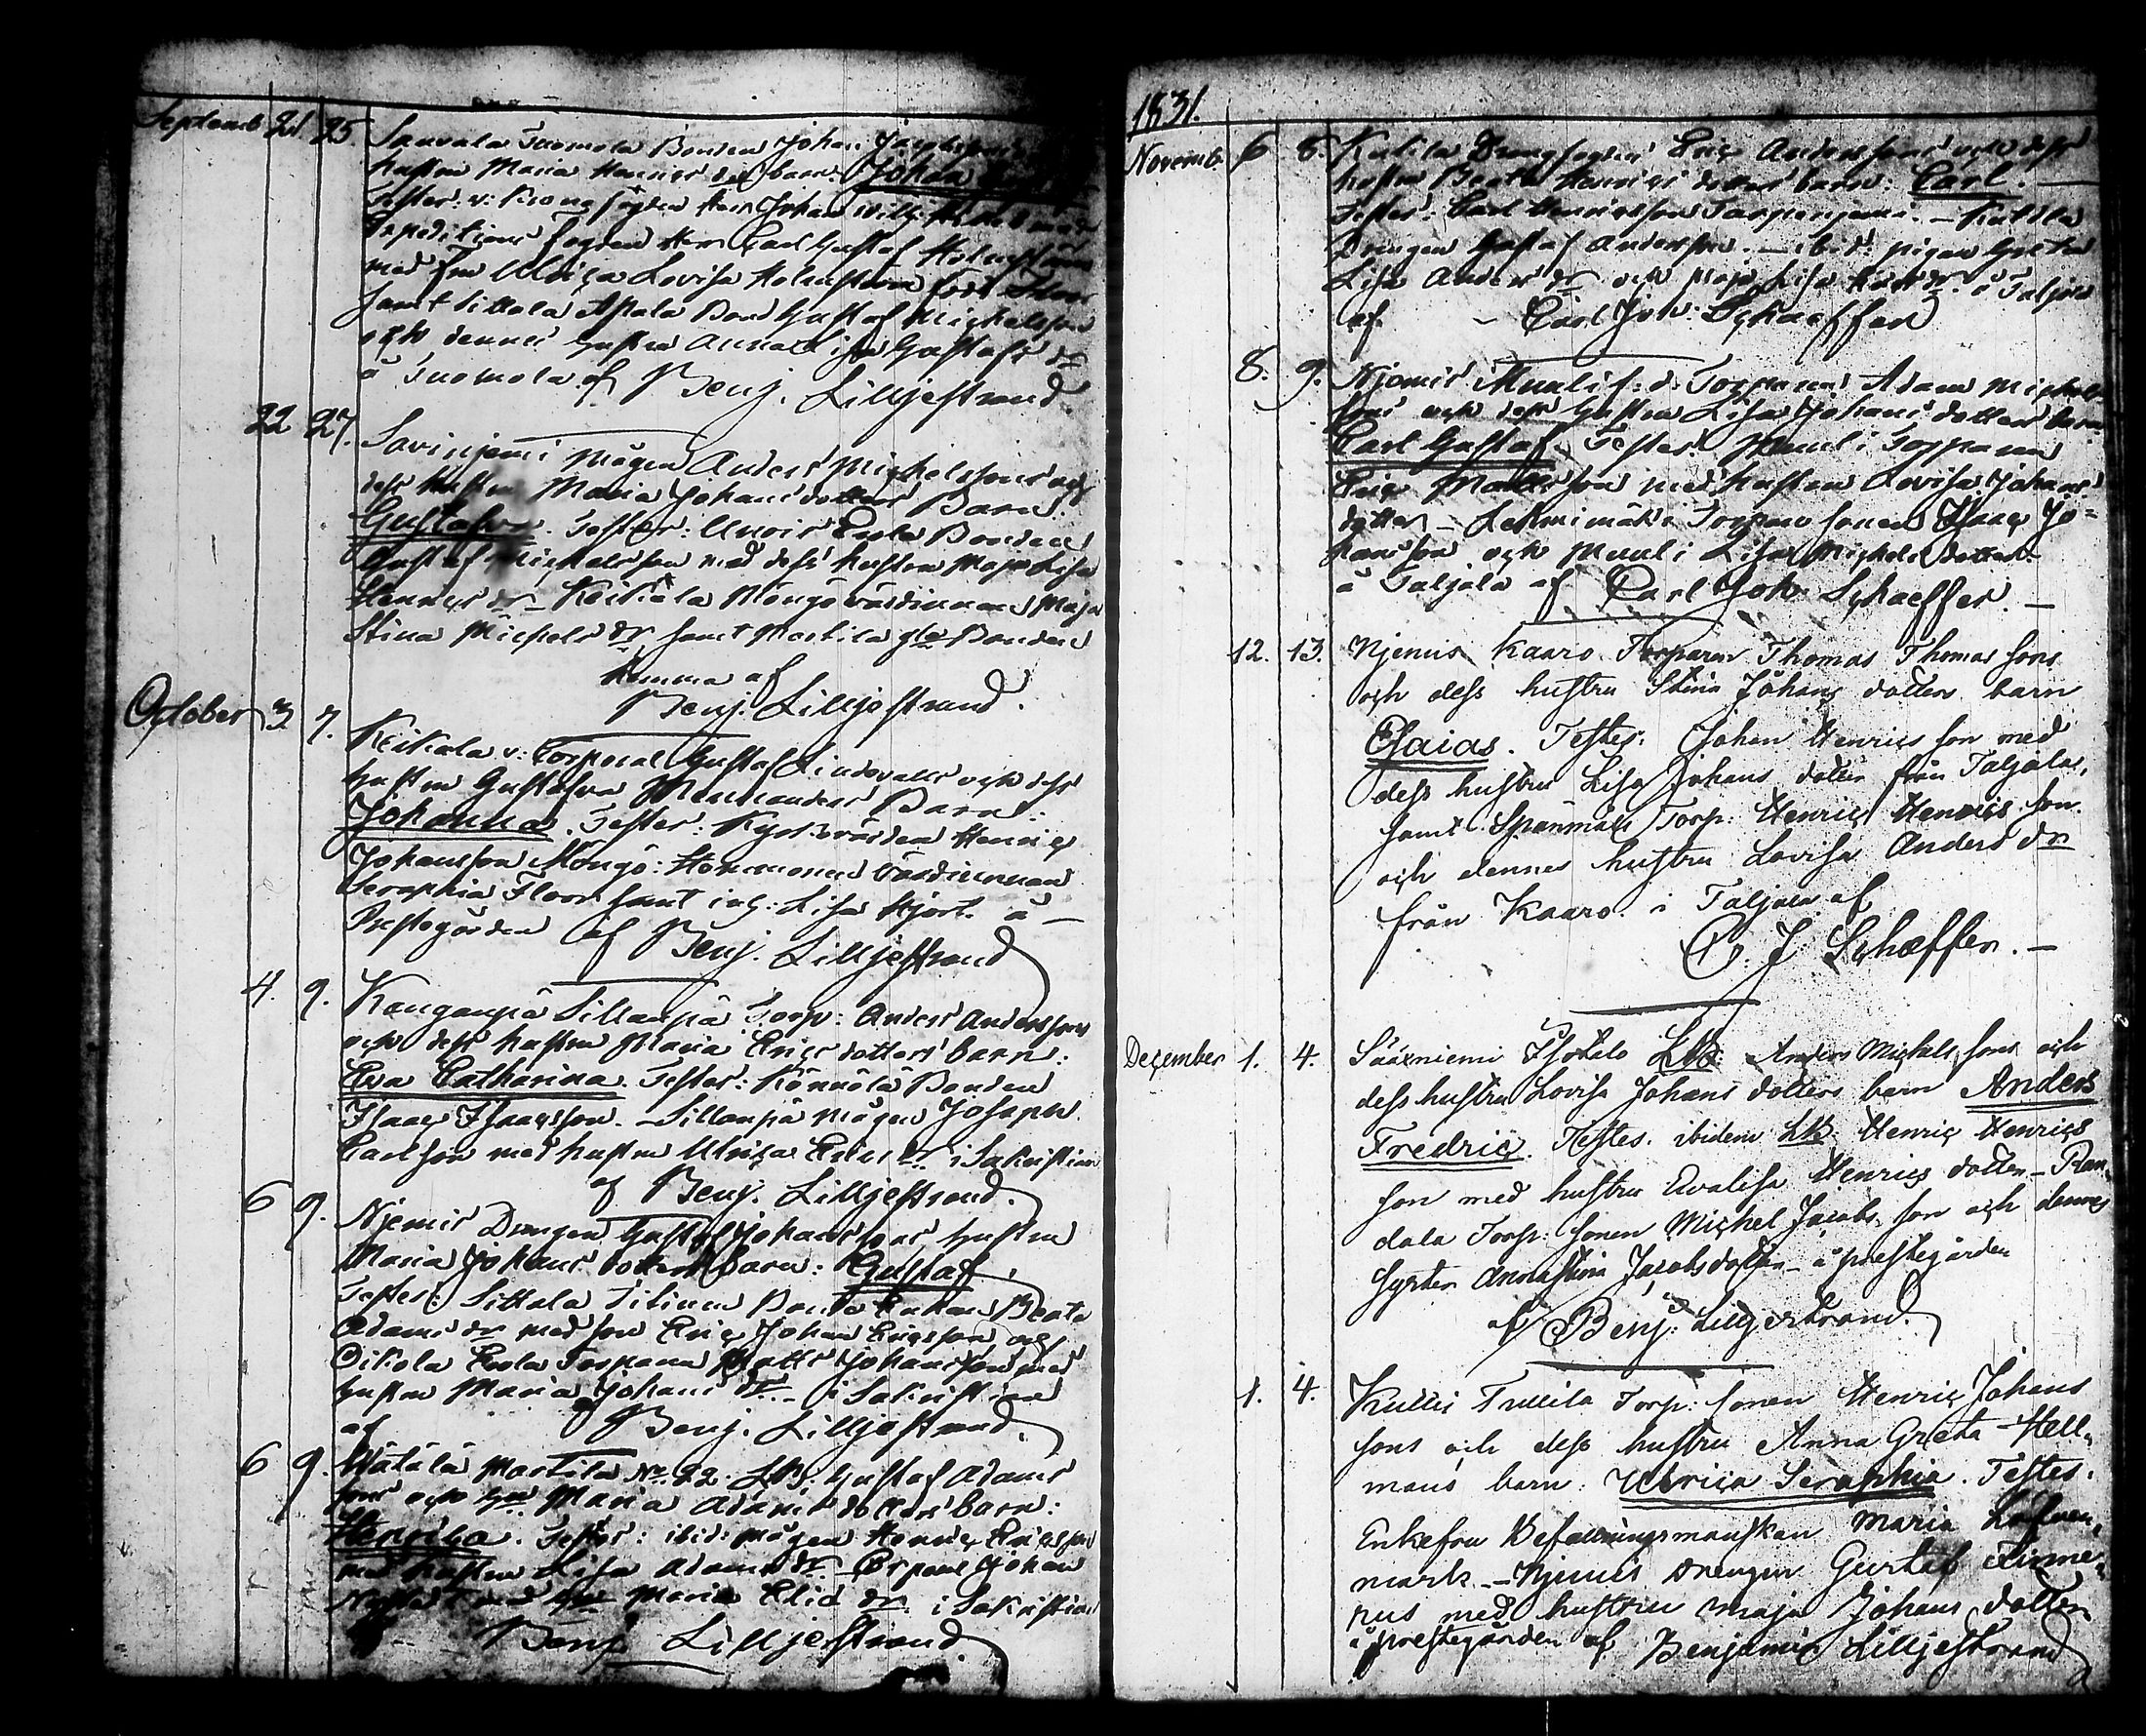 Septemb. 21 25. Sauvala Suomela Bonden Johan
hustru Maria Henrics dr barn: Johan
Testes: v. Kronofogden Herr Johan
Expeditions Fogden Herr Carl Gustaf Holmström
med fru Ulrica Lovisa Holmström född
samt Sittala Bond Gustaf Michelsson
och dennes hustru Anna Lisa Gustafs dr
å Suomela af Benj. Lilljestrand.
22 27. Savinjemi mågen Anders Michelssons och
dess hustru Maria Johans dotters Barn:
Gustafva. Testes: Eerola Bonden
Gustaf Michelsson med dess hustru Maja Lisa
Henrics dr – Keikala Mångs värdinnan Maja
Stina Michels dr samt Martila gle Bonden
hemma af
Benj. Lilljestrand.
October 3 7. Keikala v: Corporal Gustaf Lindevalls och dess
hustru Gustafva Menanders Barn:
Johanna. Testes: Kyrkovärden Henric
Johansson värdinnan
Seraphia Floor samt inh: Lisa Hjort å –
Prestegården af Benj. Lilljestrand
4. 9. Kanganpä Sillanpä Torp: Anders Anderssons
och dess hustru Maria Erics dotters barn:
Eva Catharina. Testes: Könnölä Bonden
Isaac Isaacsson. – Sillanpä mågen Joseph
Carlson med hustru Ulrica Erics dr i Sakristian
af Benj. Lilljestrand.
6 9. Njemis Drengen Gustaf Johanssons hustru
Maria Johans dotters barn: Gustaf.
Testes: Sittala Bonde Enkan Beata
Adams dr med son Eric Johan Ericsson och
Eerola Torparen Matts Johansson med
hustru Maria Johans dr – i Sakristian
af Benj. Lilljestrand.
6 9. Wätälä Martila No 22. LB: Gustaf Adams
sons och hu Maria Adams dotters barn:
Henrica. Testes: ibid: mågen Henric Ericsson
med hustru Lisa Adams dr – Corporal Johan
med hu Maria Elia dr. i Sakristian
Benj Lilljestrand
1831.
Novemb. 6 8. Kutila Drengfogden Eric Anderssons och dess
hustru Beata Henrics dotters barn: Carl. –
Testes: Carl Henricsson – Kutila
Drengen Gustaf Andersson. – ibid: pigan Greta
Lisa Anders dr och Maja Lisa dr. å Taljala
af – Carl Joh: Schaeffer
8. 9. Njemis Muuli f: d: Torparen Adam Michels
sons och dess hustru Lisa Johans dotters barn
Carl Gustaf. Testes: Muuli Torparen
Eric Mattsson med hustru Lovisa Johans
dotter – Lehmimäki Torpare sonen Isaac Jo=
hansson och Muuli Lisa Michels dotter –
å Taljala af Carl Joh: Schaeffer. –
12. 13. Njemis Kaaro Torparen Thomas Thomas sons
och dess hustru Stina Johans dotters barn
Esaias. Testes: Johan Henrics son med
dess hustru Lisa Johans dotter från Taljala,
samt Torp: Henric Henrics son.
och dennes hustru Lovisa Anders dr
från Kaaro. i Taljala af
C. J Schæffer. –
December 1. 4. Sääxniemi Isotalo LB: Anders Michels sons och
dess hustru Lovisa Johans dotters barn Anders
Fredric. Testes. ibidem LB. Henric Henrics
son med hustru Evalisa Henrics dotter – Ran,
dala Torp: sonen Michel Jacobs son och dennes
syster Annastina Jacobsdotter – å prestegården
af Benj: Lilljestrand.
1. 4. Kullis Torp: sonen Henric Johans
sons och dess hustru Anna Greta Hell,
mans barn: Ulrica Seraphia. Testes:
Enkefru Befallningsmanskan Maria
mark. – Njemis Drengen Gustaf
rus med hustru Maja Johans dotter
å prestegården af Benjamin Lilljestrand